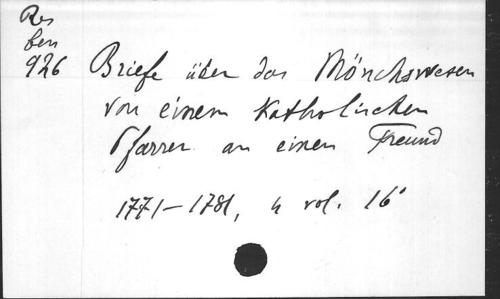 Res
ben
926
Briefe über das Mönchswesen
von einem Katholischen
Pfarrer an einen Freund
1771-1781, 4 vol. 16°